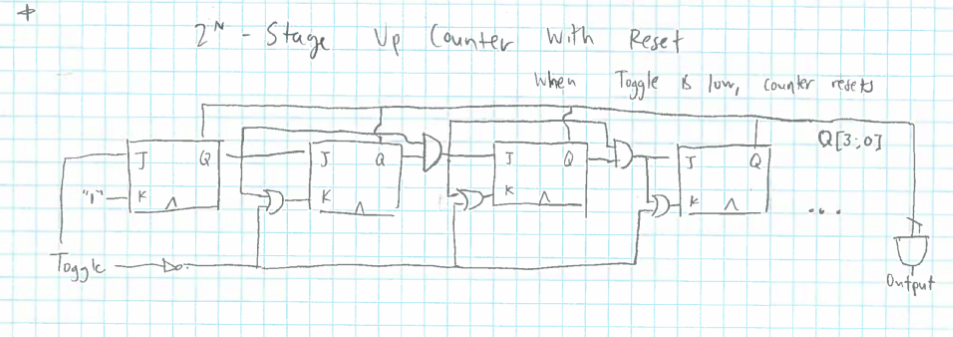 2^N - Stage Up Counter With Reset
When Toggle is low, counter resets
Q[3:0]
J Q J Q J Q J Q
"1" K K K K
...
Toggle
Output